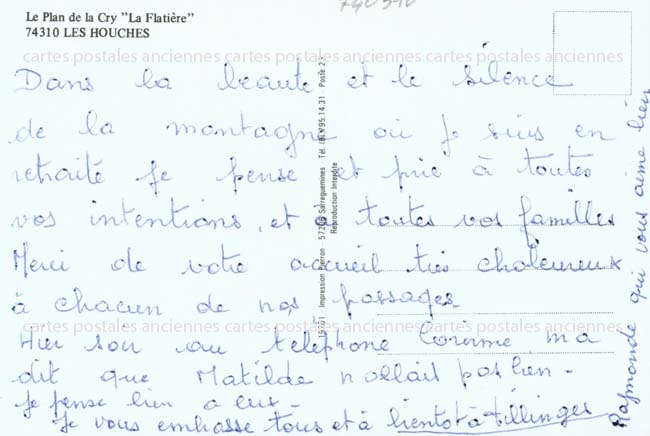 Le Plan de la Cry "La Flatière"
74310 LES HOUCHES
740310
cartes postales anciennes cartes postales anciennes cartes postales anciennes
Dans la beauté et le silence
de la montagne où je suis en
retraite je pense et prie à toutes
vos intentions, et à toutes vos familles
Merci de votre accueil très chaleureux
à chacun de nos passages
cartes postales anciennes cartes postales anciennes cartes postales anciennes
Hier soir au telephone Corinne m'a
dit que Matilde n'allait pas bien -
Je pense bien a eux -
Je vous embrasse tous et à bientot à Fillinges
Raymonde qui vous aime bien
Impression Pierron 57206 Sarreguemines Tél. (87) 95.14.31 Poste 2
Reproduction Interdite